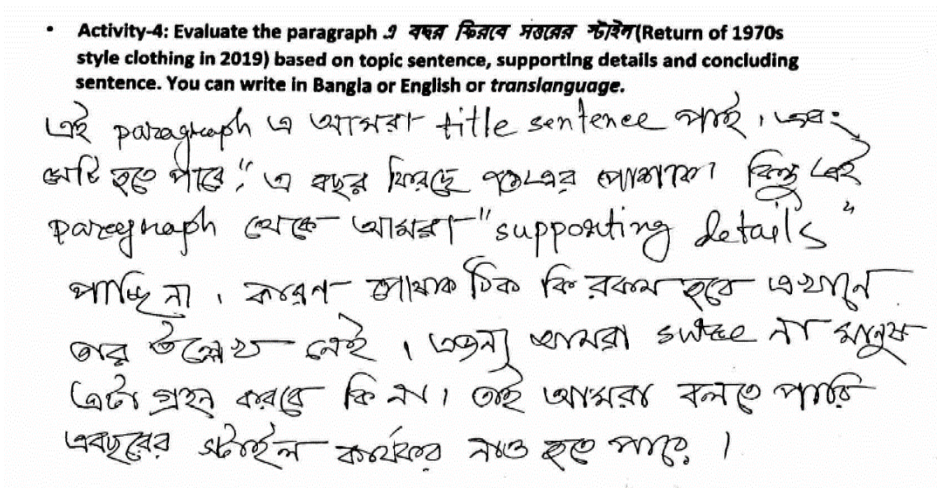 • Activity-4: Evaluate the paragraph এ বছর ফিরবে সত্তরের স্টাইল(Return of 1970s
style clothing in 2019) based on topic sentence, supporting details and concluding
sentence. You can write in Bangla or English or translanguage.
এই paragraph এ আমরা title sentence পাই। এবং
সেটি হতে পারে "এ বছর ফিরছে পোশাক। কিন্তু এই
paragraph থেকে আমরা "supporting details"
পাচ্ছি না। কারণ পোষাক ঠিক কি রকম হবে এখানে
তার উল্লেখ নেই। এজন্য আমরা suree না মানুষ
এটা গ্রহন করবে কি না। তাই আমরা বলতে পারি
এবছরের স্টাইল কার্যকর নাও হতে পারে।